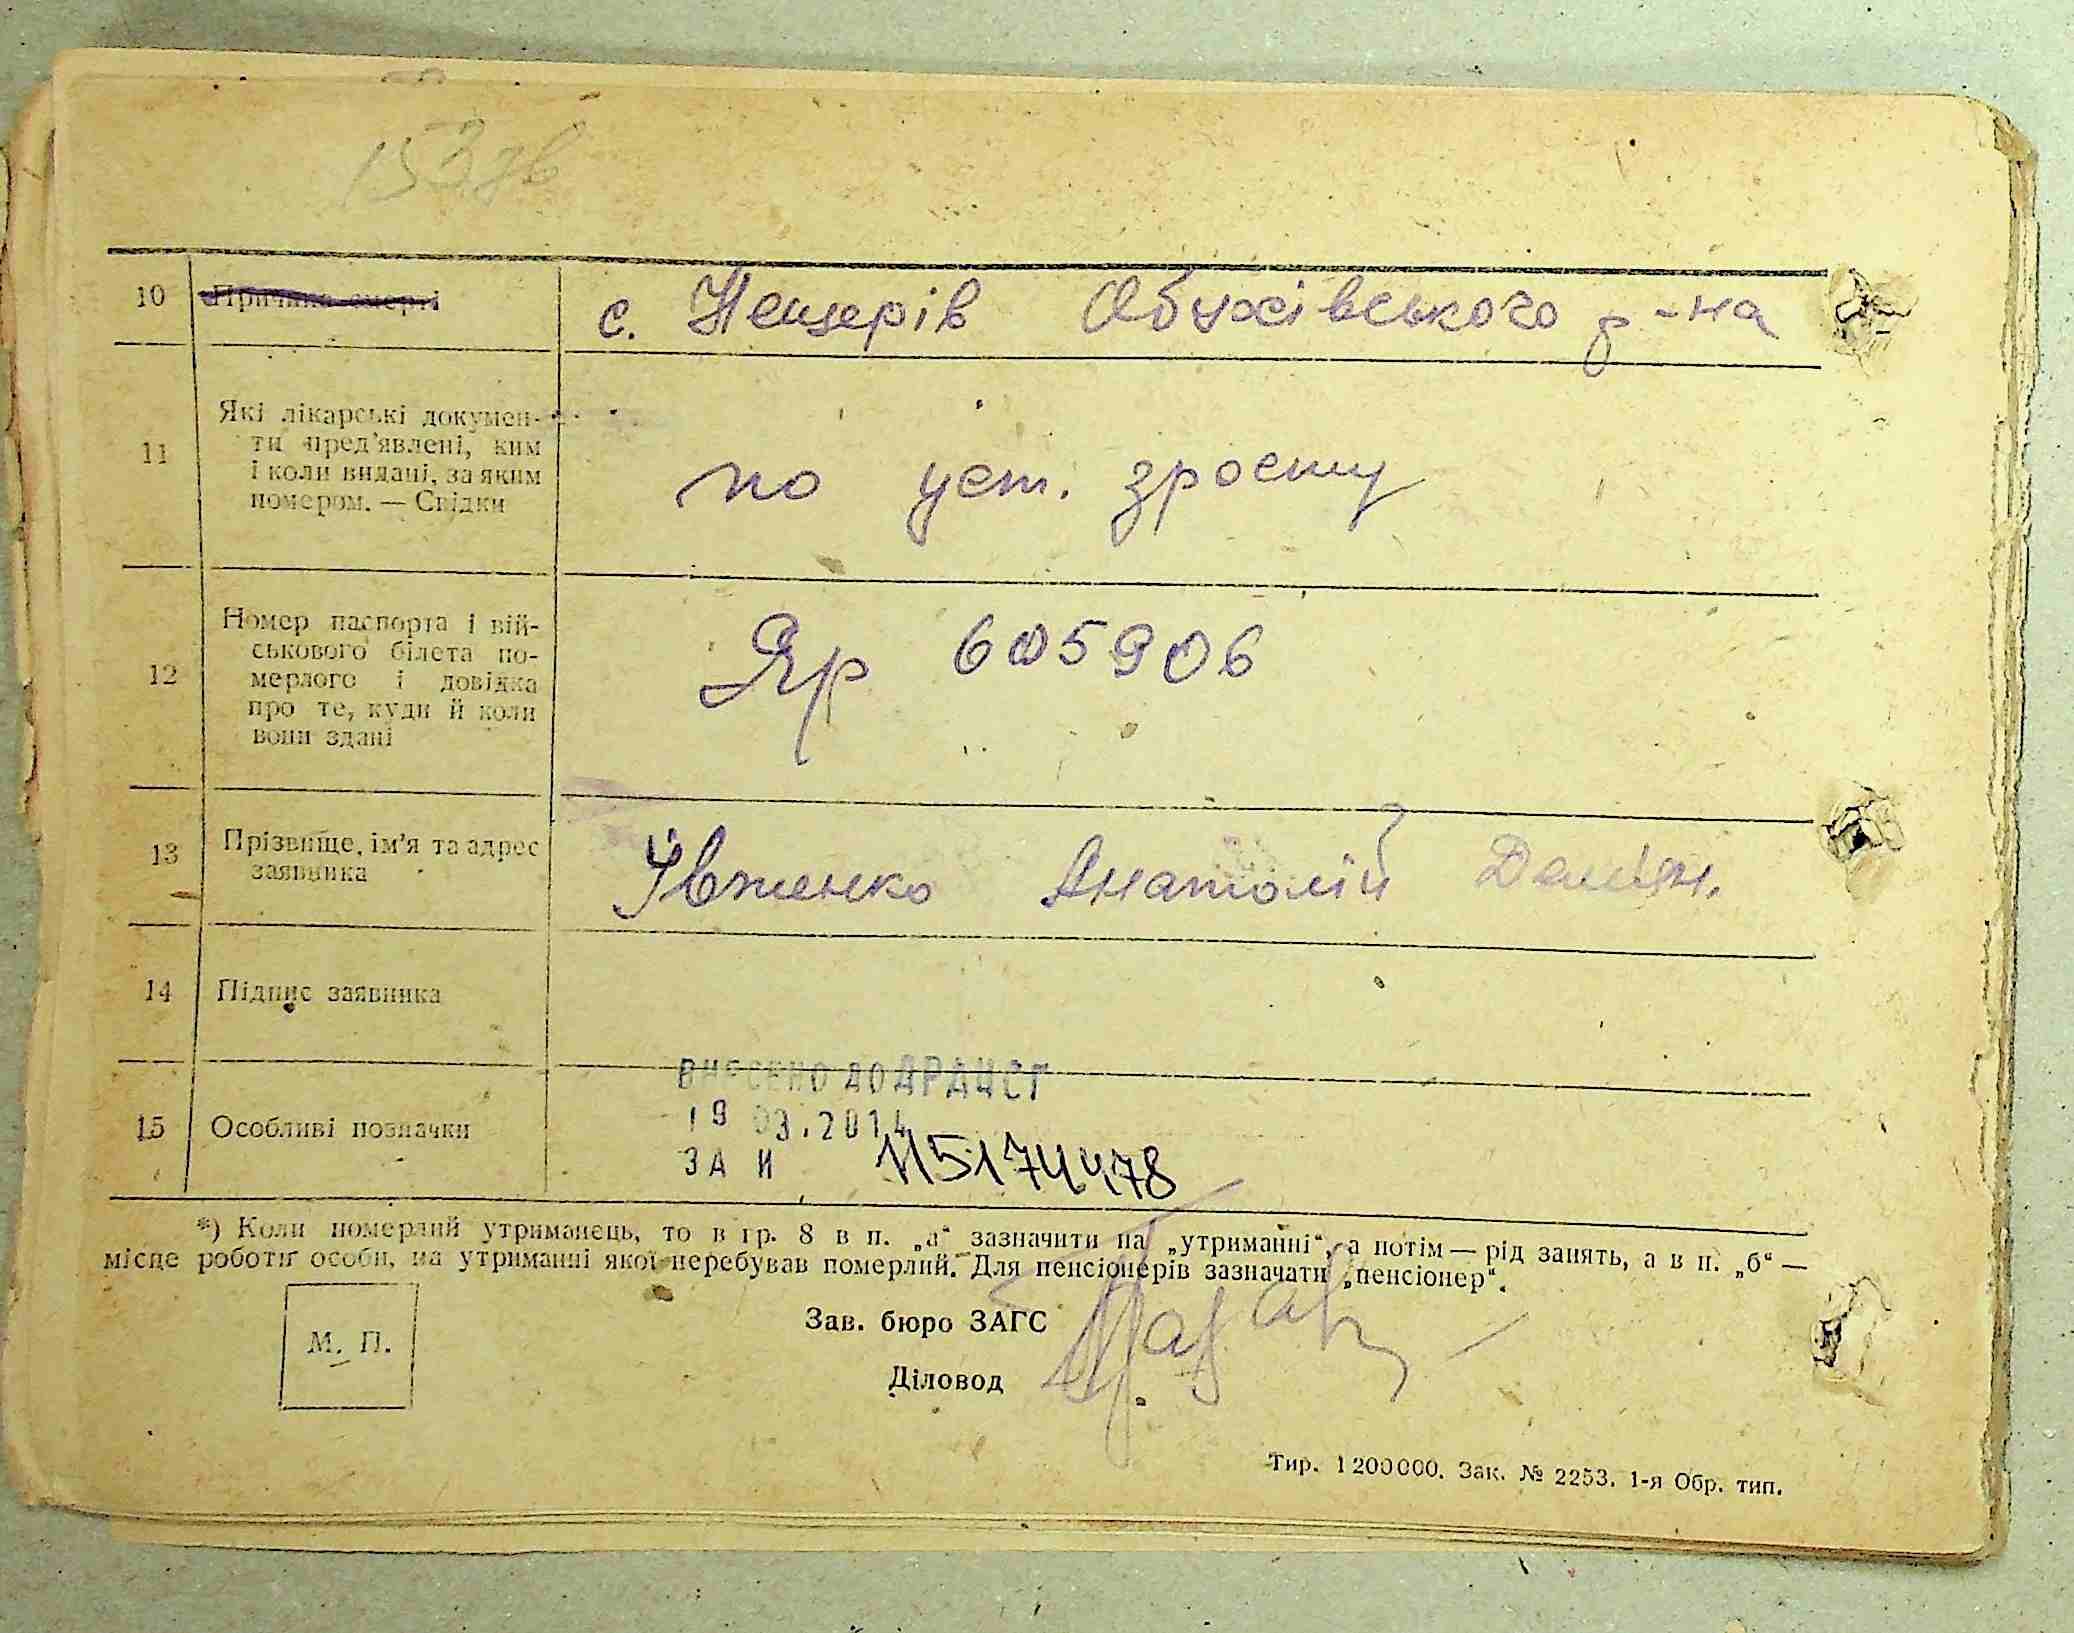 153 зв
10 Причина смерті с. Нещерів Обухівського р-на
11 Які лікарські докумен-
ти пред'явлені, ким
і коли видані, за яким
номером. — Свідки
по уст. зросту
12 Номер паспорта і вій-
ськового білета по-
мерлого і довідка
про те, куди й коли
вони здані
Яр 605906
13 Прізвище, ім'я та адрес
заявника
Ївженко Анатолій Демян.
14 Підпис заявника
15 Особливі позначки
ВНЕСЕНО ДО ДРАЦСГ
19 03.2014
ЗА И 115174478
*) Коли померлий утриманець, то в гр. 8 в п. „а“ зазначити на „утриманні“, а потім — рід занять, а в п. „б“ —
місце роботи особи, на утриманні якої перебував померлий. Для пенсіонерів зазначати „пенсіонер“.
М. П.
Зав. бюро ЗАГС
Діловод
Тир. 1200000. Зак. № 2253. 1-я Обр. тип.